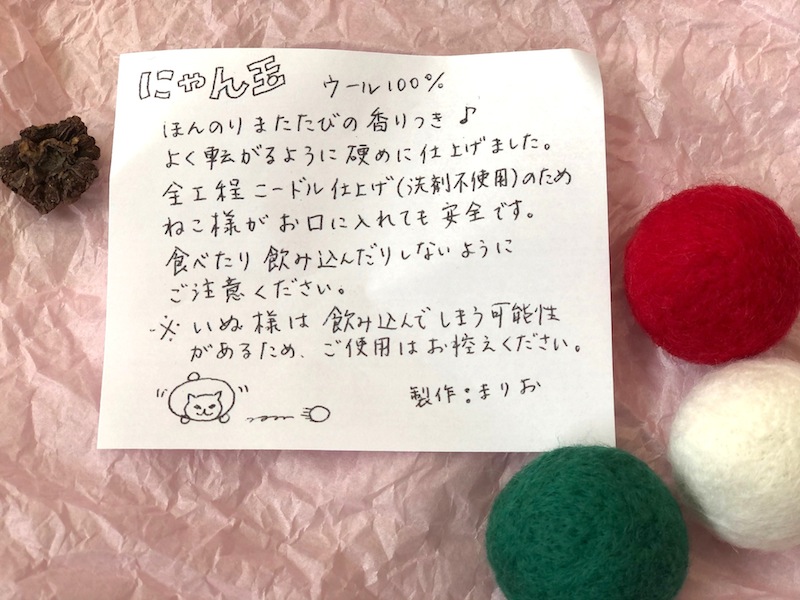 にゃん玉 ウール100%
ほんのりまたたびの香りつき♪
よく転がるように硬めに仕上げました。
全工程ニードル仕上げ(洗剤不使用)のため
ねこ様がお口に入れても安全です。
食べたり飲み込んだりしないように
ご注意ください。
※いぬ様は飲み込んでしまう可能性
があるため、ご使用はお控えください。
製作:まりお